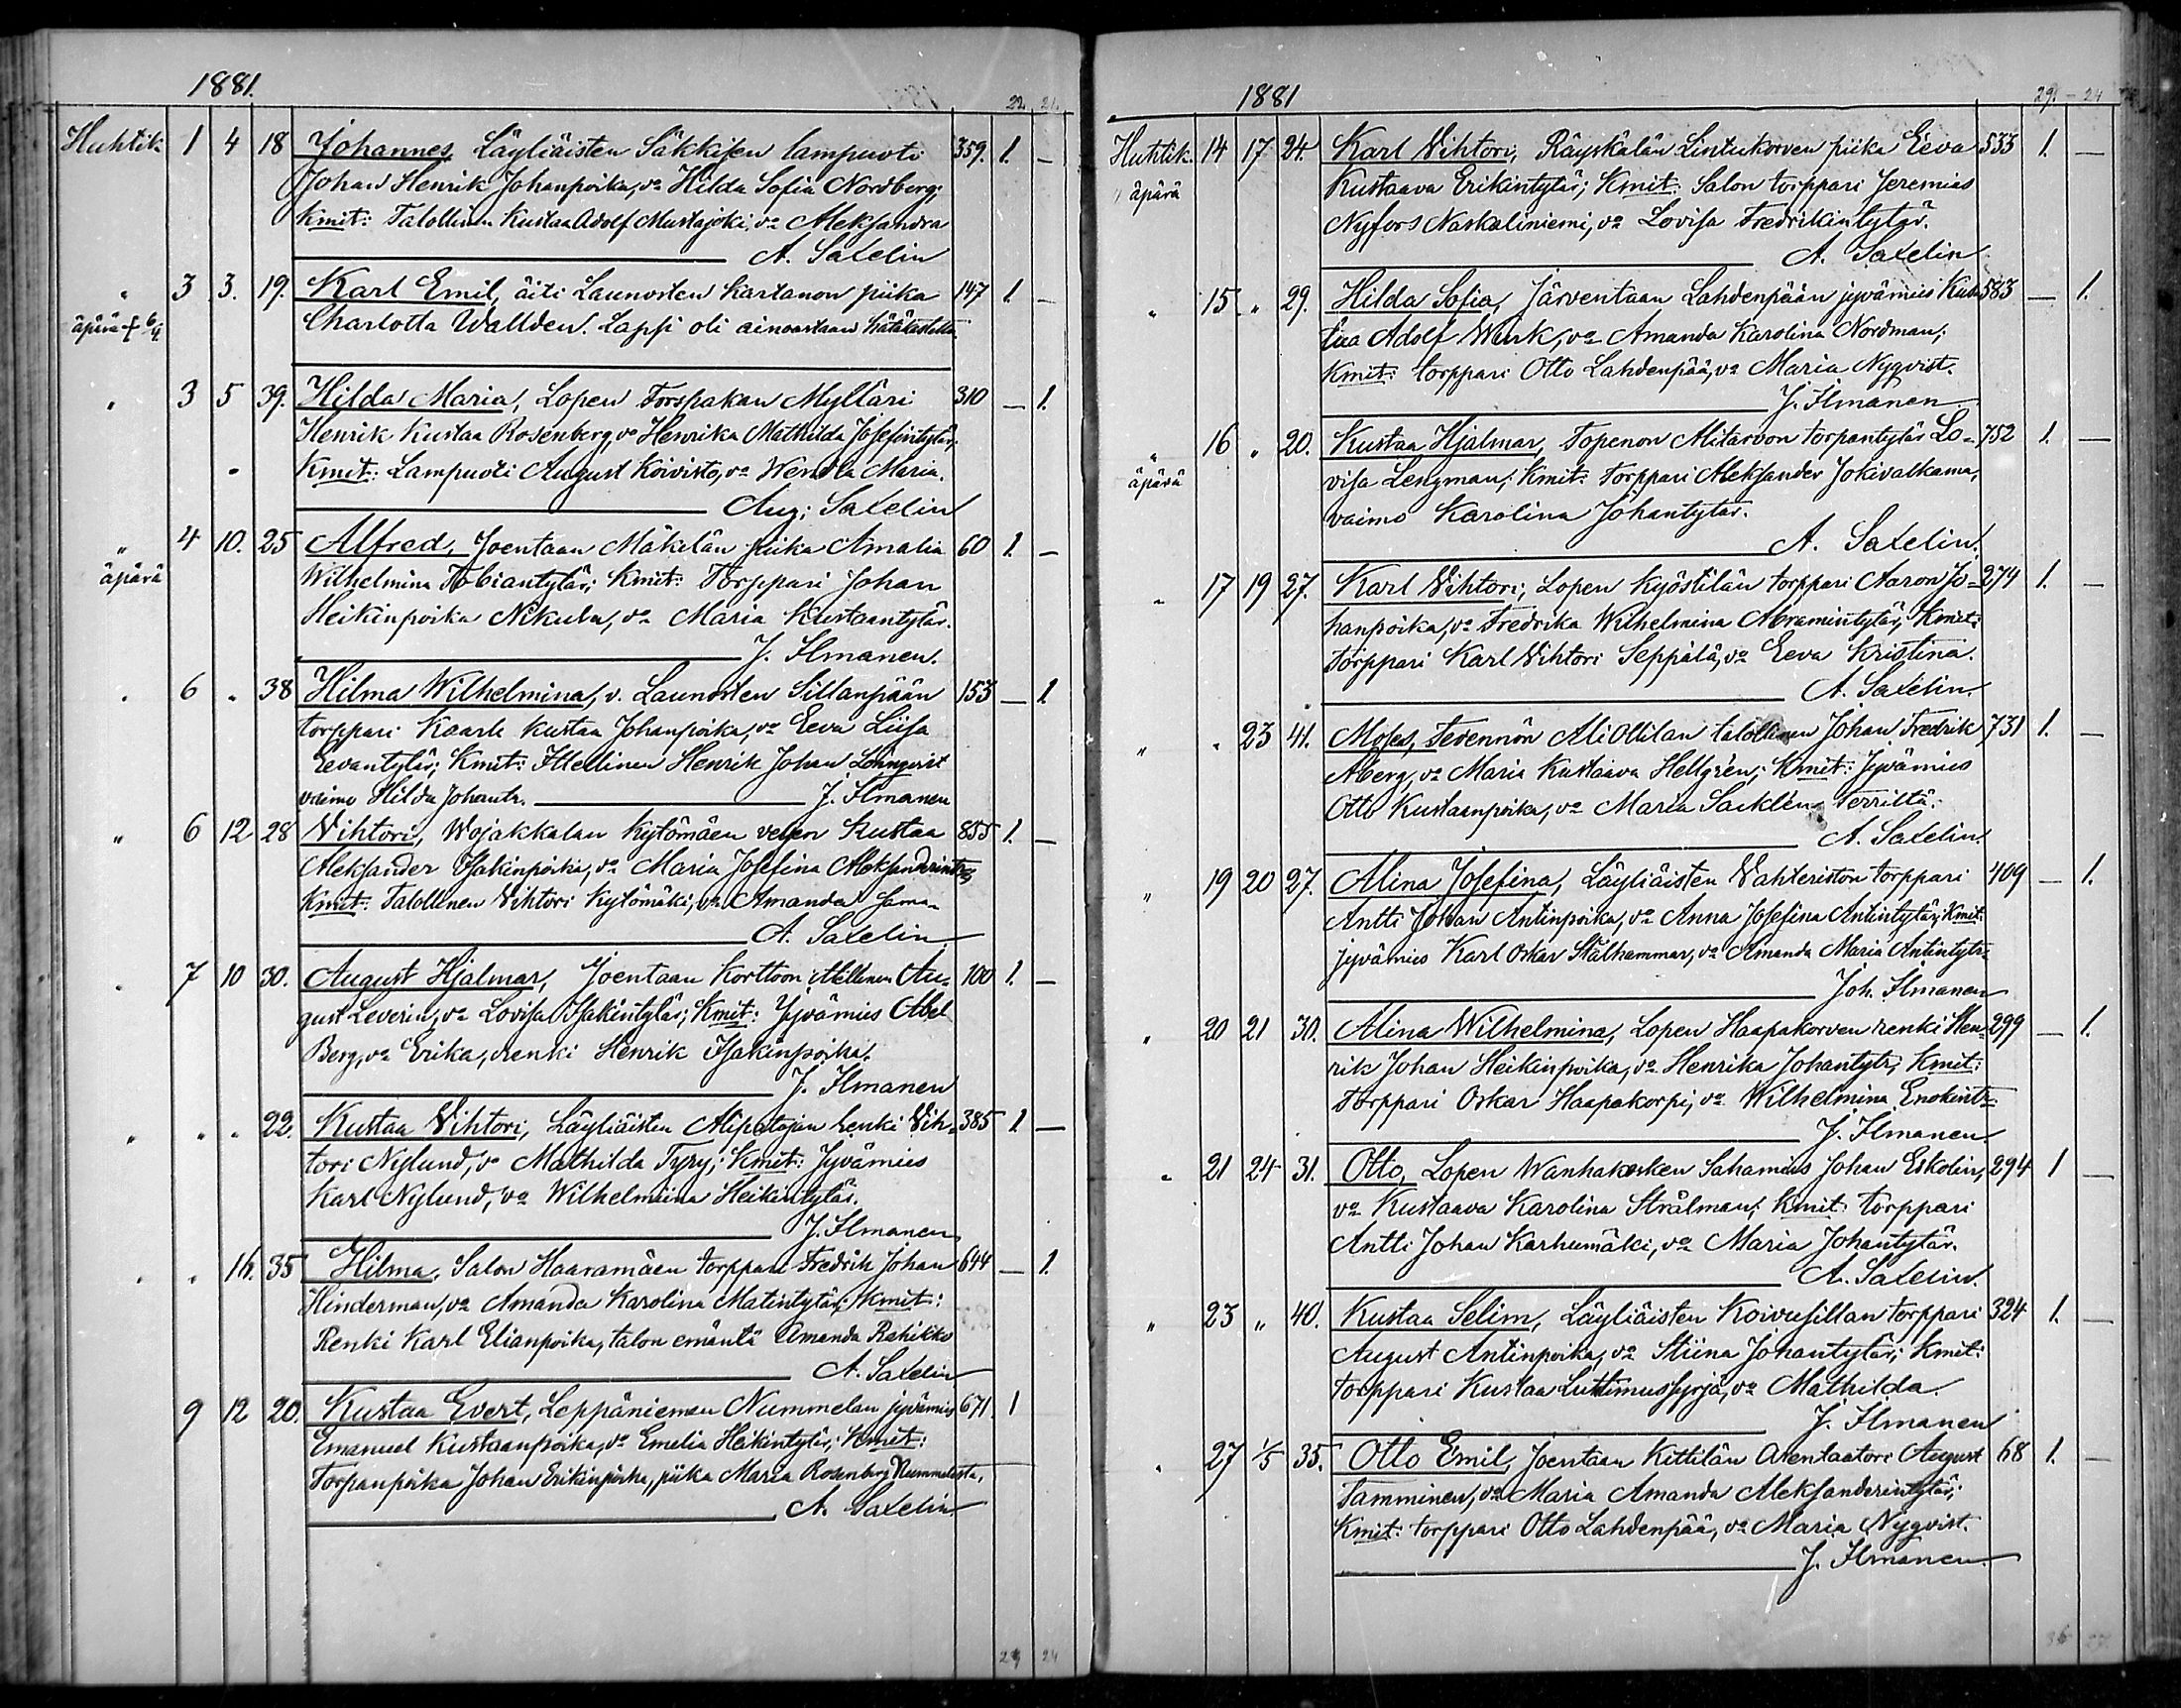 1881.
22. 21.
Huhtik. 1 4 18 Johannes, Läyliäisten Säkkisen lampuoti 359. 1. —
Johan Henrik Johanpoika, vo Hilda Sofia Nordberg;
Kmit: Talollinen Kustaa Adolf Mustajoki, vo Aleksandra
A. Saxelin
" 3 3. 19. Karl Emil, äiti Launosten Kartanon piika 147 1. —
äpärä † 6/4 Charlotta Wallden. Lapsi oli ainoastaan hätäkastettu.
" 3 5 39. Hilda Maria, Lopen Forspakan Mylläri 310 — 1.
Henrik Kustaa Rosenberg, vo Henrika Mathilda Josefintytär;
Kmit: Lampuoti August Koivisto, vo Wendla Maria.
Aug: Saxelin
" 4 10. 25 Alfred, Joentaan Mäkelän piika Amalia 60 1. —
äpärä Wilhelmina Tobiantytär; Kmit: Torppari Johan
Heikinpoika Nikula, vo Maria Kustaantytär.
J. Ilmanen.
" 6 " 38 Hilma Wilhelmina, v. Launosten Sillanpään 153 — 1.
torppari Kaarle Kustaa Johanpoika, vo Eeva Liisa
Eevantytär; Kmit: Itellinen Henrik Johan Lönnqvist
vaimo Hilda Johantr. J. Ilmanen
" 6 12 28 Vihtori, Wojakkalan Kytömäen vävy Kustaa 855 1. —
Aleksander Isakinpoika, vo Maria Josefina Aleksanderintr;
Kmit: Talollinen Vihtori Kytömäki, vo Amanda
A. Saxelin
" 7 10 30. August Hjalmar, Joentaan Korttoon itellinen Au- 100 1. —
gust Leverin, vo Lovisa Isakintytär; Kmit: Jyvämies Abel
Berg, vo Erika, renki Henrik Isakinpoika.
J. Ilmanen
" " " 22. Kustaa Vihtori, Läyliäisten Alipatajan renki Vih- 385 1 —
tori Nylund, vo Mathilda Tyry; Kmit: Jyvämies
Karl Nylund, vo Wilhelmina Heikintytär.
J. Ilmanen
" " 16. 35 Hilma, Salon Haaramäen torppari Fredrik Johan 644 — 1.
Hinderman, vo Amanda Karolina Matintytär; Kmit:
Renki Karl Elianpoika, talon emäntä Amanda Rahikko
A. Saxelin
9 12 20. Kustaa Evert, Leppäniemen Nummelan jyvämies 671 1
Emanuel Kustaanpoika, vo Emelia Heikintytär; Kmit:
Torpanpoika Johan Erikinpoika, piika Maria Rosenberg Nummelasta.
A. Saxelin
29 24
1881
29. – 24
Huhtik. 14 17 24. Karl Vihtori, Räyskälän Lintukorven piika Eeva 533 1. —
" äpärä Kustaava Erikintytär; Kmit: Salon torppari Jeremias
Nyfors Naskaliniemi, vo Lovisa Fredrikintytär.
A. Saxelin
" 15 " 29. Hilda Sofia, Järventaan Lahdenpään jyvämies Kus- 583 — 1.
taa Adolf Wink, vo Amanda Karolina Nordman;
Kmit: torppari Otto Lahdenpää, vo Maria Nyqvist.
J. Ilmanen
" 16 " 20. Kustaa Hjalmar, Topenon Alitarvon torpantytär Lo- 752 1. —
äpärä visa Lengman; Kmit: Torppari Aleksander Jokivalkama,
vaimo Karolina Johantytär.
A. Saxelin.
" 17 19 27. Karl Vihtori, Lopen Kyöstilän torppari Aaron Jo- 274 1. —
hanpoika, vo Fredrika Wilhelmina Abramintytär; Kmit:
Torppari Karl Vihtori Seppälä, vo Eeva Kristina.
A. Saxelin.
" " 23 41. Moses, Tevennön Ali Ollilan talollinen Johan Fredrik 731 1. —
Åberg, vo Maria Kustaava Hellgrén; Kmit: Jyvämies
Otto Kustaanpoika, vo Maria Sacklén Terriltä.
A. Saxelin.
" 19 20 27. Alina Josefina, Läyliäisten Vahteriston torppari 409 — 1.
Antti Johan Antinpoika, vo Anna Josefina Antintytär; Kmit:
jyvämies Karl Oskar Stålhammar, vo Amanda Maria Antintytr.
Joh. Ilmanen
" 20 21 30. Alina Wilhelmina, Lopen Haapakorven renki Hen- 299 — 1.
rik Johan Heikinpoika, vo Henrika Johantytr; Kmit:
Torppari Oskar Haapakorpi, vo Wilhelmina Enokintr.
J. Ilmanen.
" 21 24 31. Otto, Lopen Wanhakosken Sahamies Johan Eskolin, 294 1 —
vo Kustaava Karolina Strålman; Kmit: torppari
Antti Johan Karhumäki, vo Maria Johantytär.
A. Saxelin.
" 23 " 40. Kustaa Selim, Läyliäisten Koivusillan torppari 324 1. —
August Antinpoika, vo Stiina Johantytär; Kmit:
torppari Kustaa Luttimussyrjä, vo Mathilda.
J. Ilmanen
" 27 1/5 35. Otto Emil, Joentaan Kittilän Arentaatori August 68 1. —
Tamminen, vo Maria Amanda Aleksanderintytär;
Kmit: torppari Otto Lahdenpää, vo Maria Nyqvist.
J. Ilmanen.
36